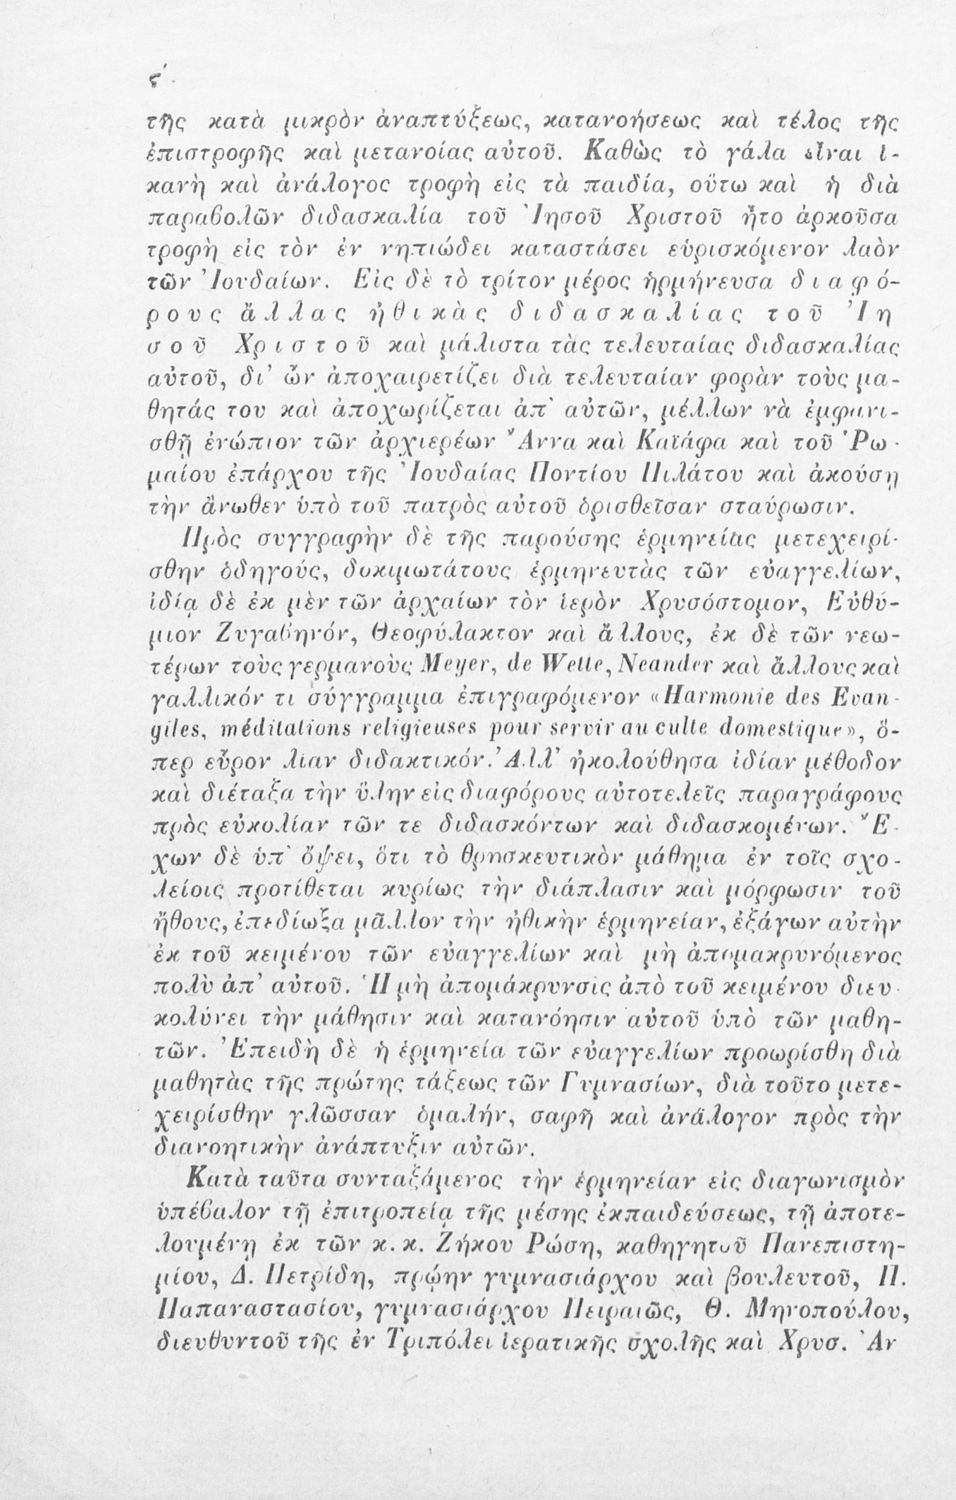 ϛ΄.
τῆς κατὰ μικρὸν ἀναπτύξεως, κατανοήσεως καὶ τέλος τῆς
ἐπιστροφῆς καὶ μετανοίας αὐτοῦ. Καθὼς τὸ γάλα εἶναι ἱ-
κανὴ καὶ ἀνάλογος τροφὴ εἰς τὰ παιδία, οὕτω καὶ ἡ διὰ
παραβολῶν διδασκαλία τοῦ Ἰησοῦ Χριστοῦ ἦτο ἀρκοῦσα
τροφὴ εἰς τὸν ἐν νηπιώδει καταστάσει εὑρισκόμενον λαὸν
τῶν Ἰουδαίων. Εἰς δὲ τὸ τρίτον μέρος ἡρμήνευσα διαφό-
ρους ἄλλας ἠθικὰς διδασκαλίας τοῦ Ἰη
σοῦ Χριστοῦ καὶ μάλιστα τὰς τελευταίας διδασκαλίας
αὐτοῦ, δι' ὧν ἀποχαιρετίζει διὰ τελευταίαν φορὰν τοὺς μα-
θητάς του καὶ ἀποχωρίζεται ἀπ' αὐτῶν, μέλλων νὰ ἐμφανι-
σθῇ ἐνώπιον τῶν ἀρχιερέων Ἄννα καὶ Καϊάφα καὶ τοῦ Ῥω-
μαίου ἐπάρχου τῆς Ἰουδαίας Ποντίου Πιλάτου καὶ ἀκούσῃ
τὴν ἄνωθεν ὑπὸ τοῦ πατρὸς αὐτοῦ ὁρισθεῖσαν σταύρωσιν.
Πρὸς συγγραφὴν δὲ τῆς παρούσης ἑρμηνείας μετεχειρί-
σθην ὁδηγούς, δοκιμωτάτους ἑρμηνευτὰς τῶν εὐαγγελίων,
ἰδίᾳ δὲ ἐκ μὲν τῶν ἀρχαίων τὸν ἱερὸν Χρυσόστομον, Εὐθύ-
μιον Ζυγαβηνόν, Θεοφύλακτον καὶ ἄλλους, ἐκ δὲ τῶν νεω-
τέρων τοὺς γερμανοὺς Meyer, de Wette, Neander καὶ ἄλλους καὶ
γαλλικόν τι σύγγραμμα ἐπιγραφόμενον «Harmonie des Evan-
giles, méditations religieuses pour servir au culte domestique», ὅ-
περ εὗρον λίαν διδακτικόν. Ἀλλ' ἠκολούθησα ἰδίαν μέθοδον
καὶ διέταξα τὴν ὕλην εἰς διαφόρους αὐτοτελεῖς παραγράφους
πρὸς εὐκολίαν τῶν τε διδασκόντων καὶ διδασκομένων. Ἔ-
χων δὲ ὑπ' ὄψει, ὅτι τὸ θρησκευτικὸν μάθημα ἐν τοῖς σχο-
λείοις προτίθεται κυρίως τὴν διάπλασιν καὶ μόρφωσιν τοῦ
ἤθους, ἐπεδίωξα μᾶλλον τὴν ἠθικὴν ἑρμηνείαν, ἐξάγων αὐτὴν
ἐκ τοῦ κειμένου τῶν εὐαγγελίων καὶ μὴ ἀπομακρυνόμενος
πολὺ ἀπ' αὐτοῦ. Ἡ μὴ ἀπομάκρυνσις ἀπὸ τοῦ κειμένου διευ-
κολύνει τὴν μάθησιν καὶ κατανόησιν αὐτοῦ ὑπὸ τῶν μαθη-
τῶν. Ἐπειδὴ δὲ ἡ ἑρμηνεία τῶν εὐαγγελίων προωρίσθη διὰ
μαθητὰς τῆς πρώτης τάξεως τῶν Γυμνασίων, διὰ τοῦτο μετε-
χειρίσθην γλῶσσαν ὁμαλήν, σαφῆ καὶ ἀνάλογον πρὸς τὴν
διανοητικὴν ἀνάπτυξιν αὐτῶν.
Κατὰ ταῦτα συνταξάμενος τὴν ἑρμηνείαν εἰς διαγωνισμὸν
ὑπέβαλον τῇ ἐπιτροπείᾳ τῆς μέσης ἐκπαιδεύσεως, τῇ ἀποτε-
λουμένῃ ἐκ τῶν κ.κ. Ζήκου Ρώση, καθηγητοῦ Πανεπιστη-
μίου, Δ. Πετρίδη, πρῴην γυμνασιάρχου καὶ βουλευτοῦ, Π.
Παπαναστασίου, γυμνασιάρχου Πειραιῶς, Θ. Μηνοπούλου,
διευθυντοῦ τῆς ἐν Τριπόλει ἱερατικῆς σχολῆς καὶ Χρυσ. Ἀν